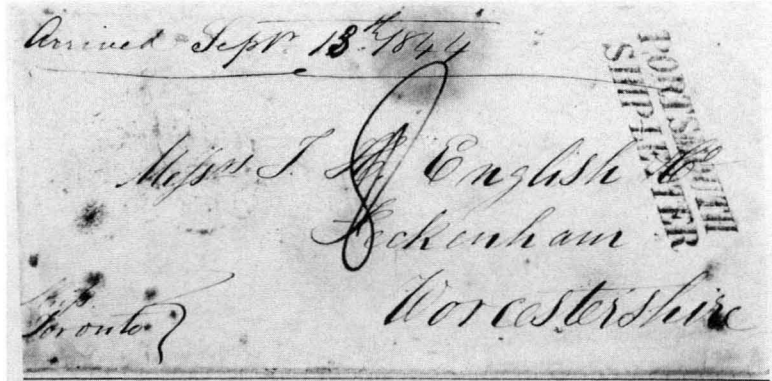 Arrived Septr. 13th. 1844
PORTSMOUTH
SHIP LETTER
8
Messrs. J. English & Co
Feckenham
Worcestershire
Ship
Toronto